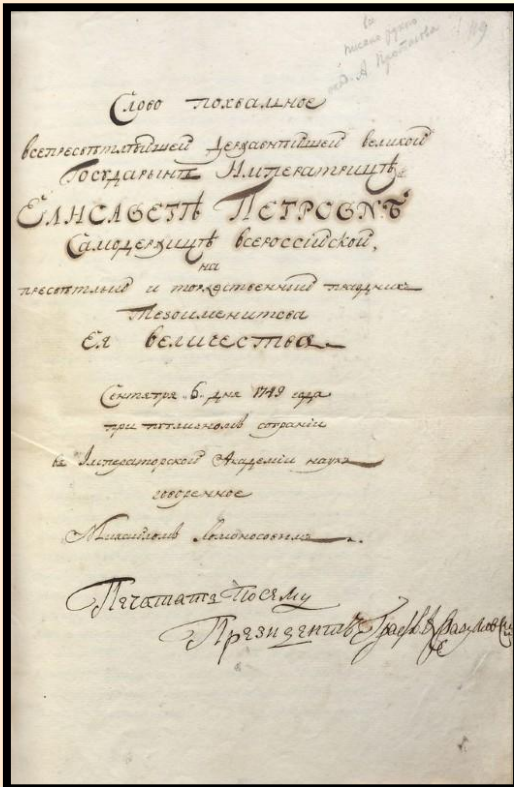 119
Слово похвальное
всепресвѣтлѣйшей державнѣйшей великой
Государынѣ Императрицѣ
ЕЛИСАВЕТѢ ПЕТРОВНѢ
Самодержицѣ всероссійской,
на
пресвѣтлый и торжественный праздник
Тезоименитства
Ея величества
Сентября 6. дня 1749 года
при публичномъ собраніи
въ Императорской Академіи наукъ
говоренное
Михайломъ Ломоносовымъ.
Печатать посему
Президентъ Графъ К. Разумовской